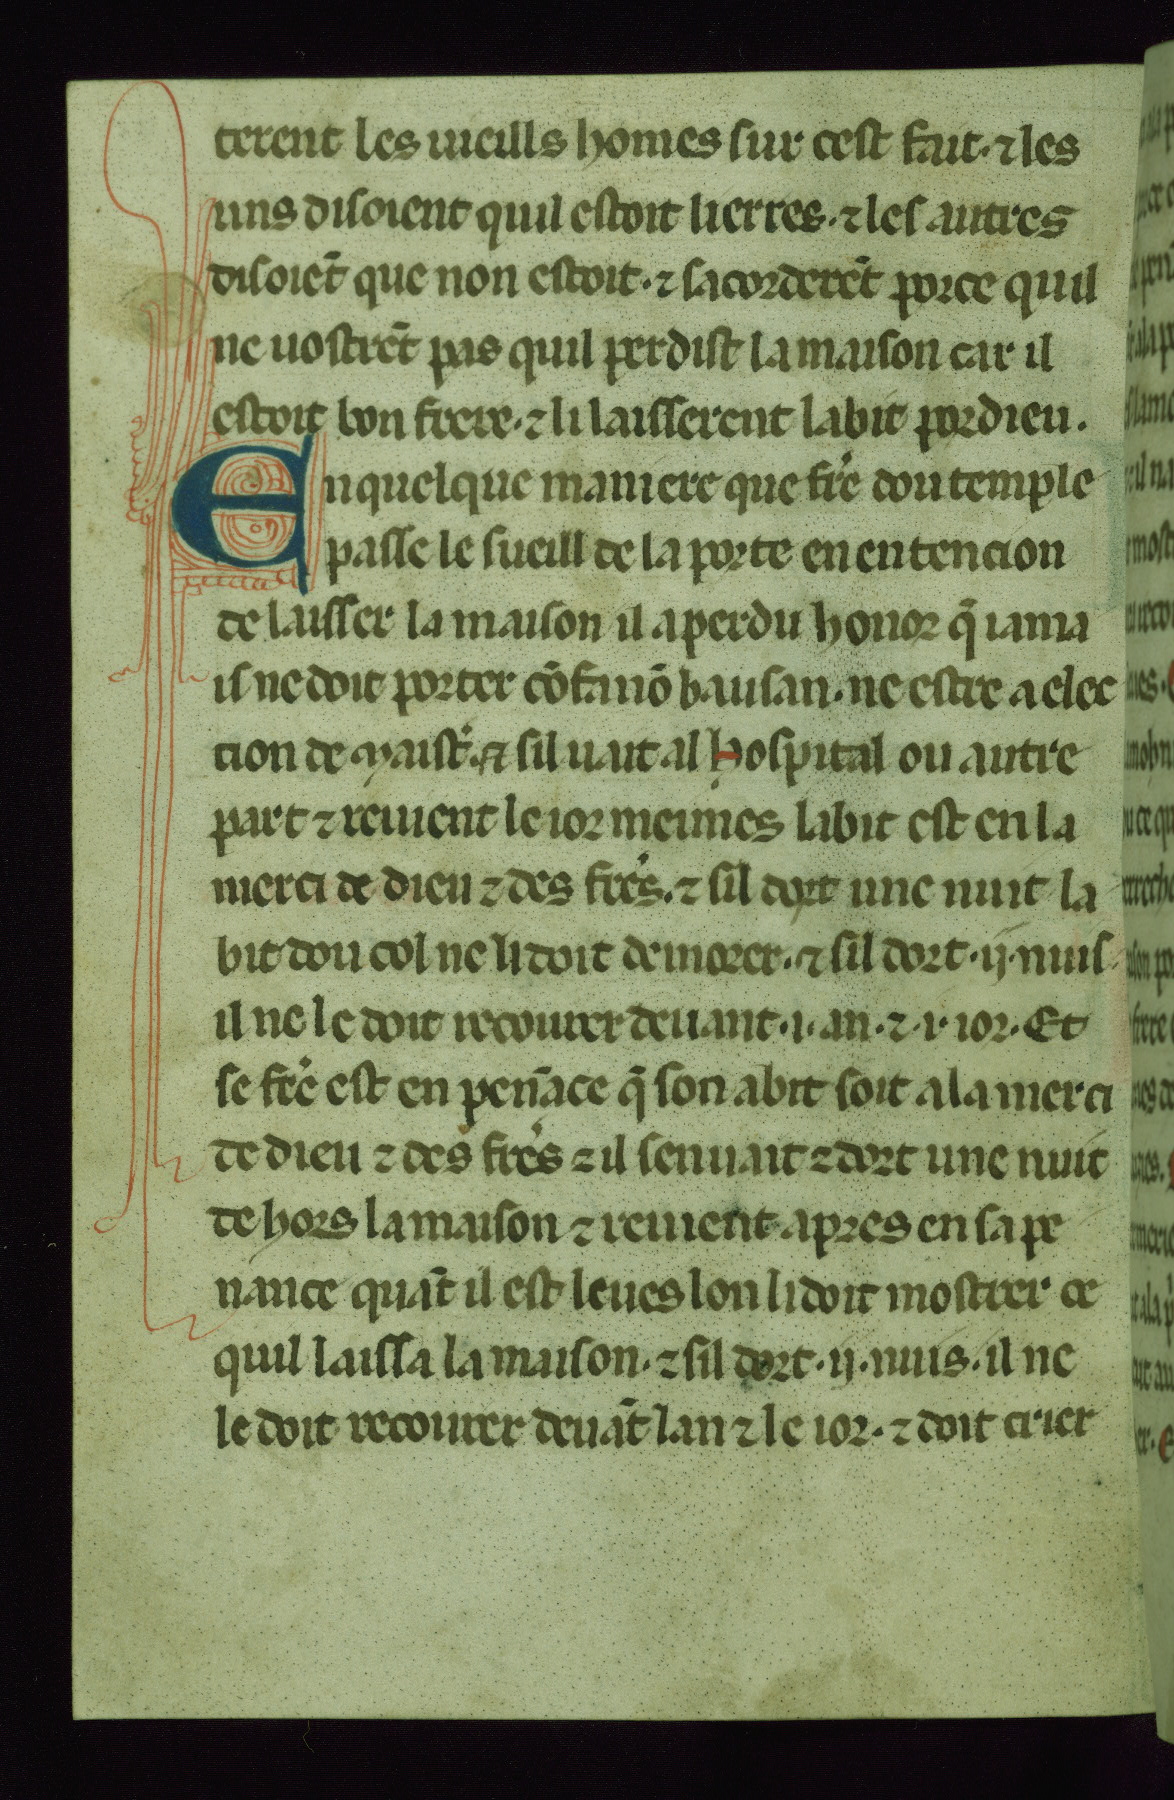 terent les uieills homes sur cest fait· ⁊ les
uns disoient quil estoit lierres· ⁊ les autres
disoiēt que non estoit· ⁊ sacorderēt porce quil
ne uostrēt pas quil perdist la maison car il
estoit bon frere· ⁊ li laisserent labit por dieu.
En quelque maniere que fre dou temple
passe le sueill de la porte en entencion
de laisser la maison il a perdu honor q̄ iama
is ne doit porter cōfanō bausan· ne estre a elec
cion de maistr̄· ⁊ sil uait al hospital ou autre
part ⁊ reuient le ior meimes labit est en la
merci de dieu ⁊ des fres· ⁊ sil dort une nuit la
bit dou col ne li doit demorer· ⁊ sil dort ·ij· nuis
il ne le doit recourer deuant ·i· an· ⁊ ·i· ior· Et
se fre est en pen̄ace q̄ son abit soit a la merci
de dieu ⁊ des fres ⁊ il sen uait ⁊ dort une nuit
de hors la maison ⁊ reuient apres en sa pe
nance quāt il est leues lon li doit mostrer ce
quil laissa la maison· ⁊ sil dort ·ij· nuis· il ne
le doit recourer deuāt lan ⁊ le ior· ⁊ doit crier